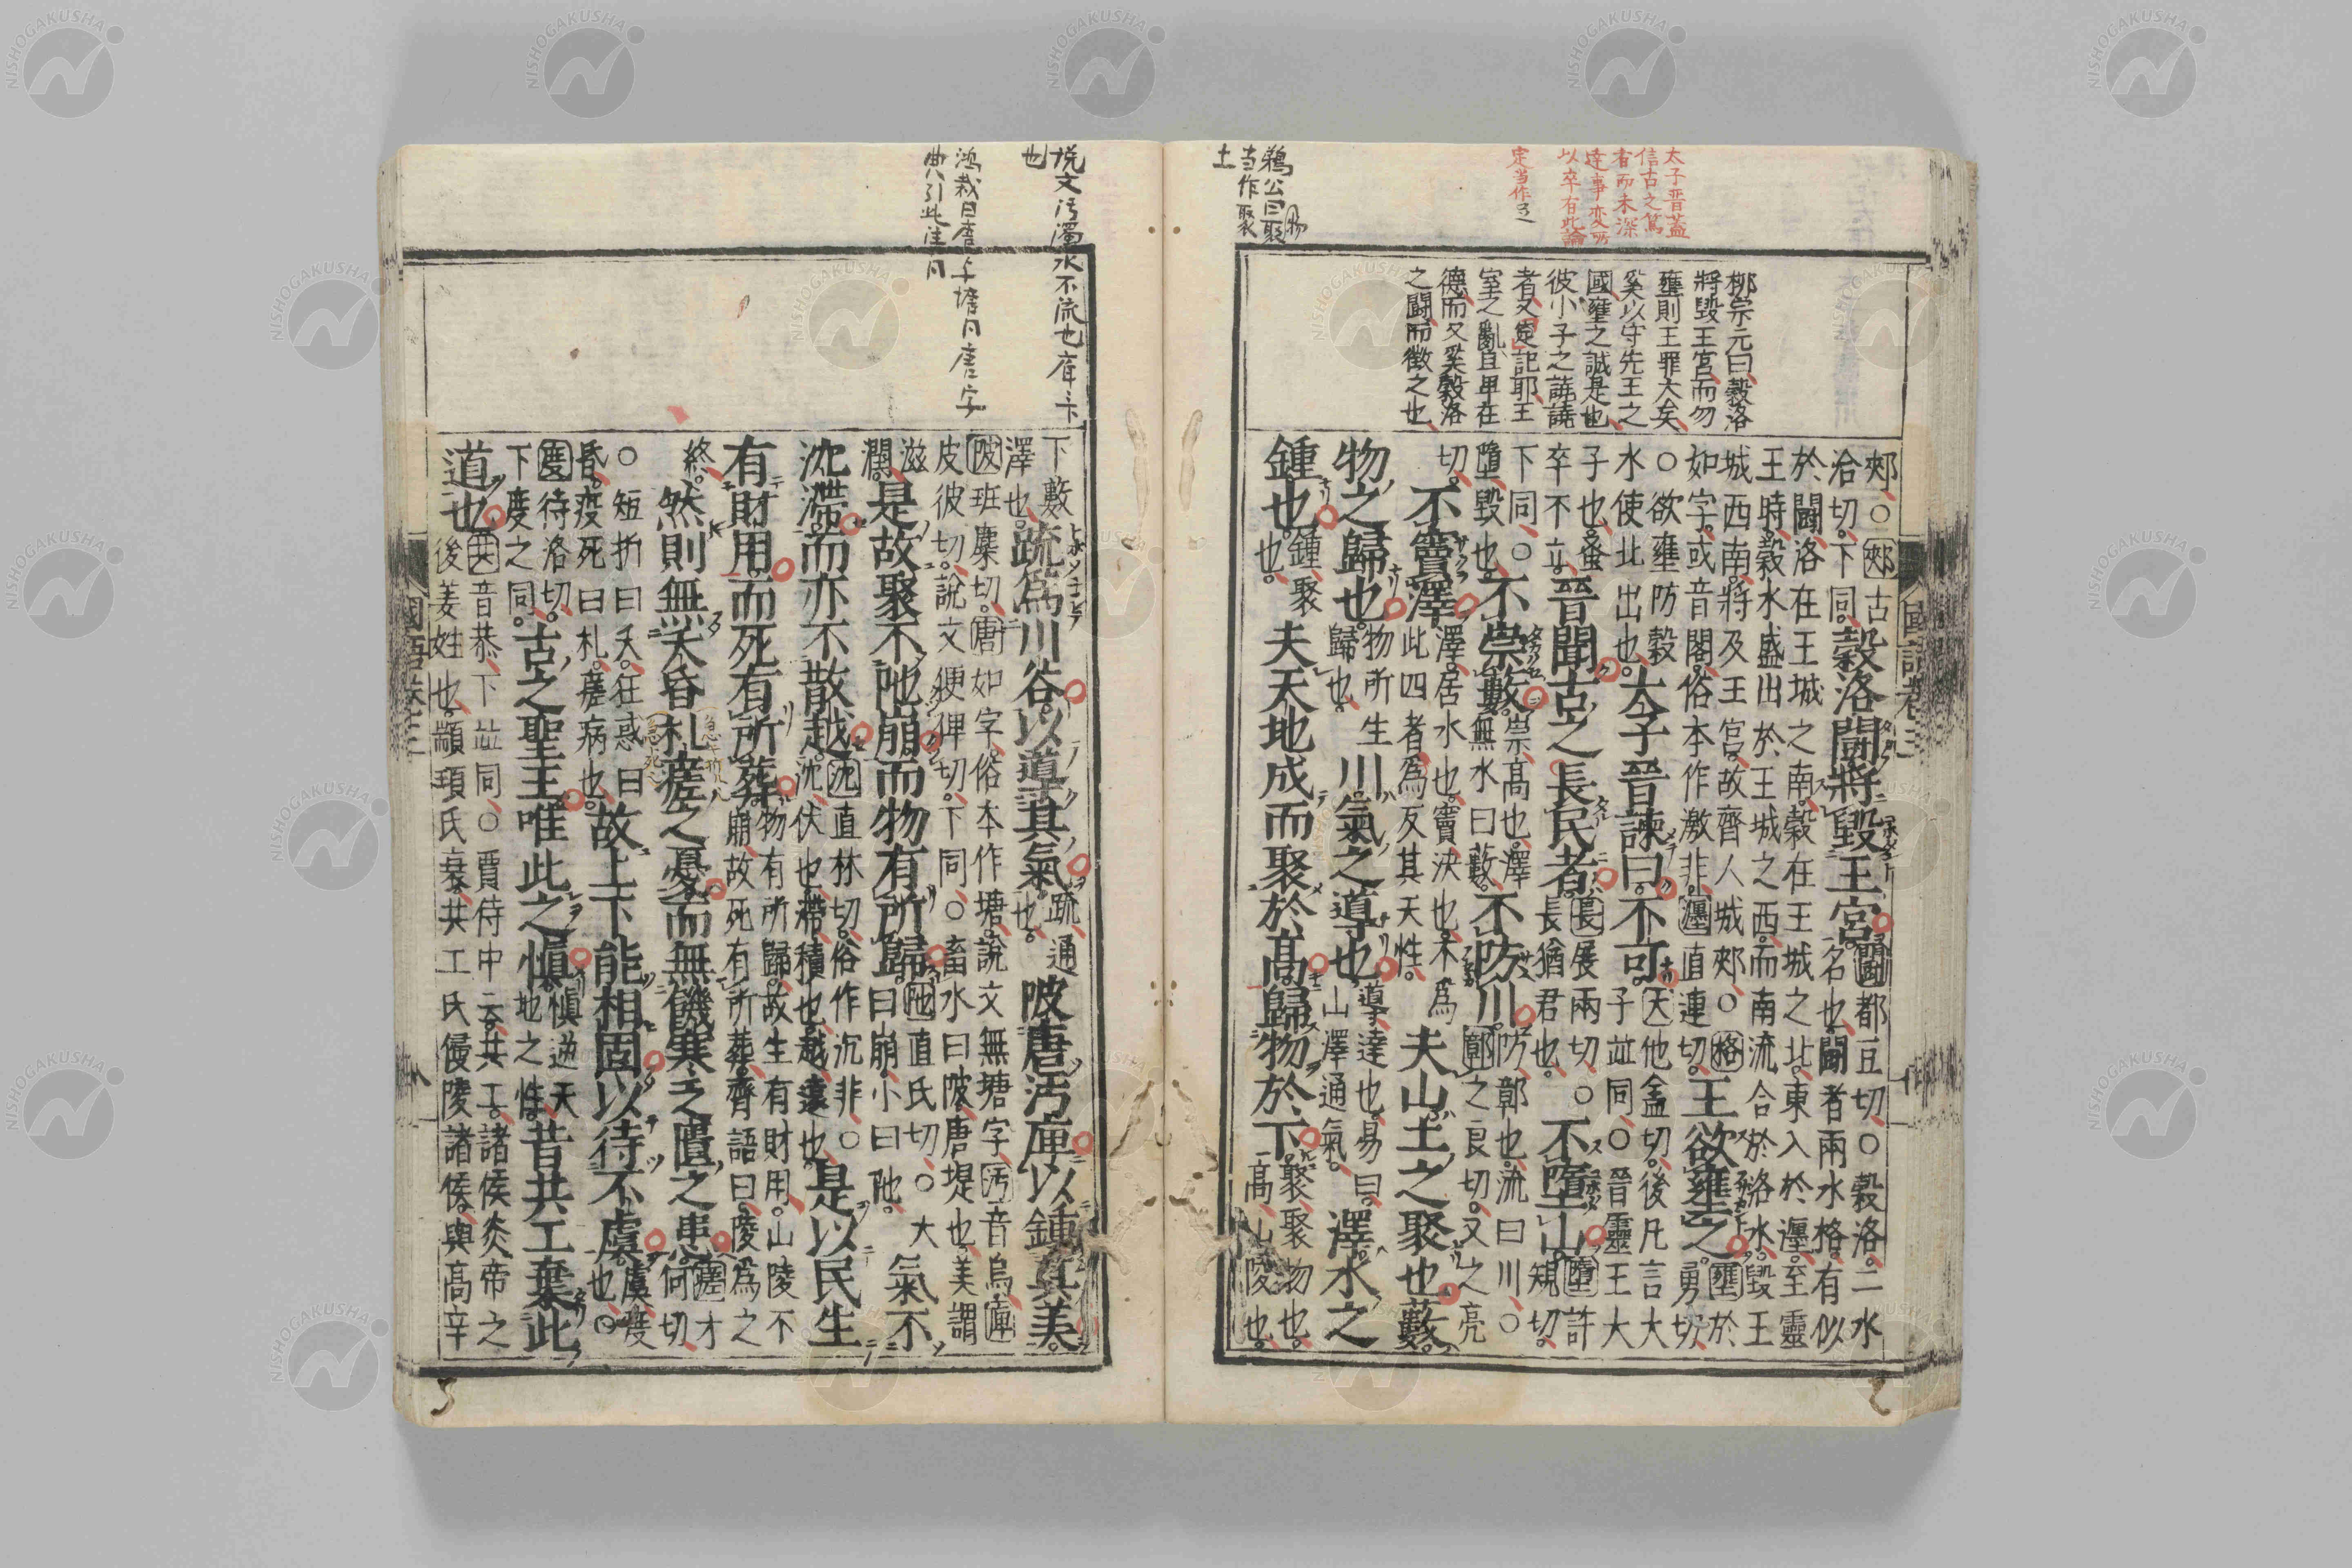 太子晋蓋
信古之篤
者而未深
達事変所
以卒有此論
定当作
柳宗元曰穀洛
將毀王宮而勿
壅則王罪大矣
奚以守先王之
國壅之誠是也
彼小子之譊譊
者又足記耶王
室之亂且卑在
德而又奚穀洛
之鬬而徵之也
郟○郟古
洽切下同穀洛鬬將毀王宮鬬都豆切○穀洛二水
名也鬬者兩水格有似
於鬬洛在王城之南穀在王城之北東入於瀍至靈
王時穀水盛出於王城之西而南流合於洛水毀王
城西南將及王宮故齊人城郟○格
如字或音閣俗本作激非瀍直連切王欲壅之壅於
勇切
○欲壅防穀
水使北出也太子晉諫曰不可大他盍切後凡言大
子竝同○晉靈王大
子也蚤
卒不立晉聞古之長民者長展兩切○
長猶君也不墮山墮許
規切
下同○
墮毀也不崇藪崇高也澤
無水曰藪不防川防鄣也流曰川○
鄣之良切又之亮
切不竇澤澤居水也竇決也不爲
此四者爲反其天性夫山土之聚也藪
物之歸也物所生
歸也川氣之導也導達也易曰
山澤通氣澤水之
鍾也鍾聚
也夫天地成而聚於高歸物於下聚聚物也
高山陵也
國語卷三
鵜公曰聚
当作聚
土
説文汚濁水不流也
也
下藪
澤也疏爲川谷以導其氣疏通
也陂唐汚庳以鍾其美
陂班麋切唐如字俗本作塘說文無塘字汚音烏庳
皮彼切說文便俾切下同○畜水曰陂唐堤也美謂
滋
潤是故聚不阤崩而物有所歸阤直氏切○大
曰崩小曰阤氣不
沈滯而亦不散越沈直林切俗作沉非○
沈伏也滯積也越遠也是以民生
有財用而死有所葬物有所歸故生有財用山陵不
崩故死有所葬齊語曰陵爲之
終然則無夭昏札瘥之憂而無饑寒乏匱之患瘥才
何切
○短折曰夭狂惑曰
昏疫死曰札瘥病也故上下能相固以待不虞虞度
也
度待洛切
下度之同古之聖王唯此之愼愼逆天
地之性昔共工棄此
道也共音恭下竝同○賈侍中云共工諸侯炎帝之
後姜姓也顓頊氏衰共工氏侵陵諸侯與高辛
國語卷三
NISHOGAKUSHA